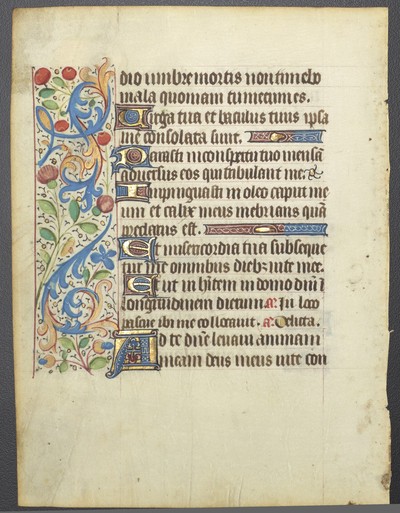 dio umbre mortis non timebo
mala quoniam tu mecum es.
Virga tua et baculus tuus ipsa
me consolata sunt.
Parasti in conspectu tuo mensā
adversus eos qui tribulant me.
Inpinguasti in oleo caput me
um et calix meus inebrians quā
preclarus est.
Et misericordia tua subseque
tur me omnibus diebz vite mee.
Et ut in hītem in domo dn̄i ī
longitudinem dierum. In loco
pascue ibi me collocavit. Delicta.
Ad te dn̄e levavi animam
meam deus meus in te con